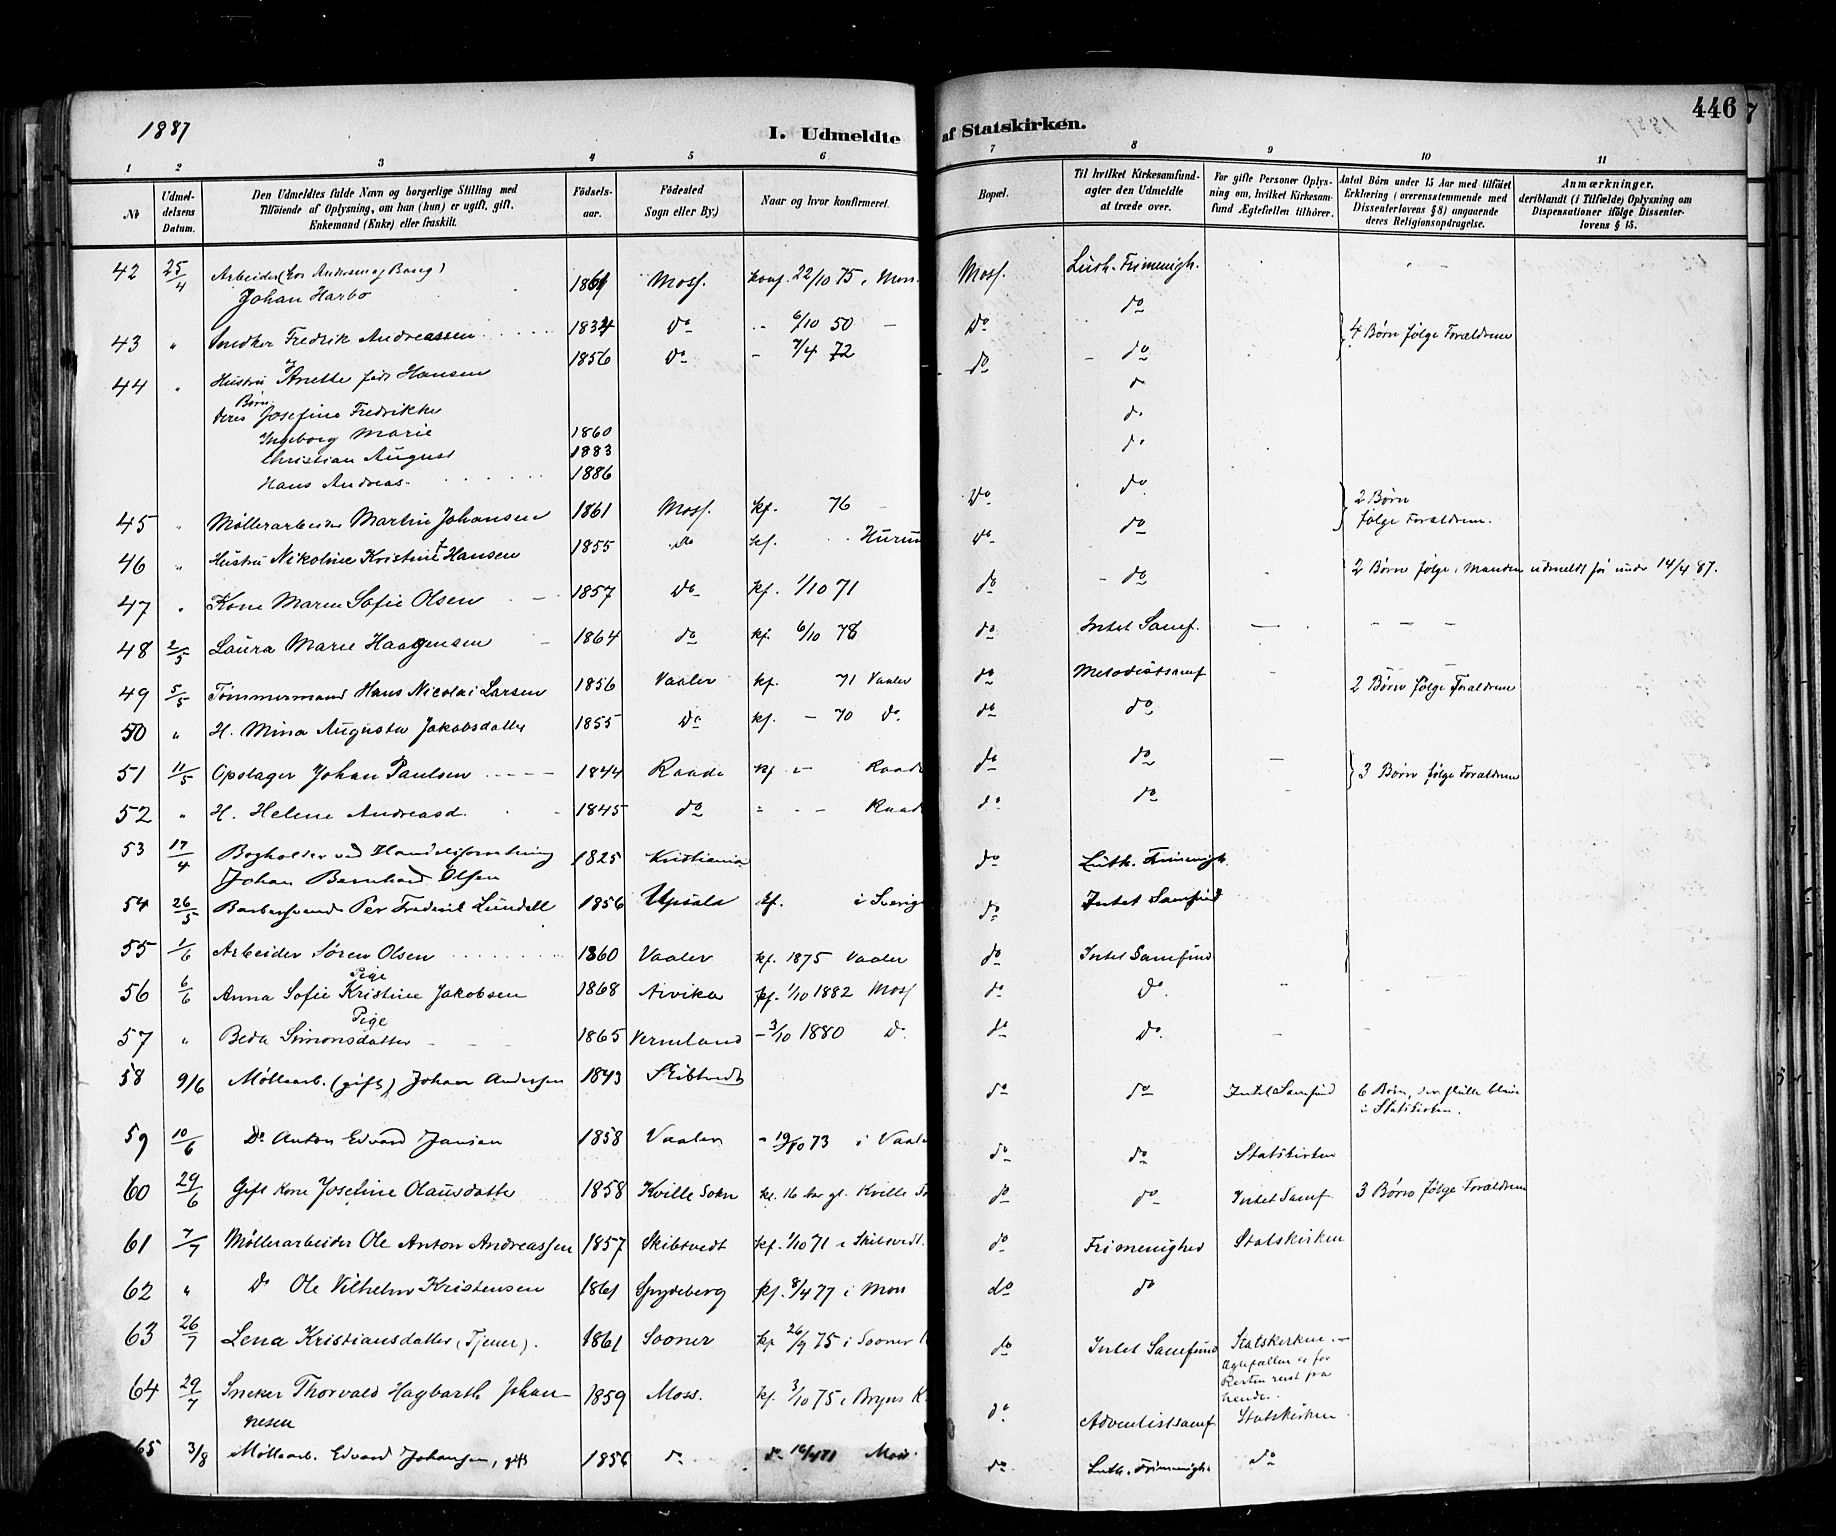 1887
I. Udmeldte af Statskirken.
446
7
1 2 3 4 5 6 7 8 9 10 11
No
Udmel-
delsens
Datum.
Den Udmeldtes fulde Navn og borgerlige Stilling med
Tilföiende af Oplysning, om han (hun) er ugift, gift,
Enkemand (Enke) eller fraskilt.
Födsels-
aar.
Födested
Sogn eller By.)
Naar og hvor konfirmeret.
Bopæl.
Til hvilket Kirkesamfund
agter den Udmeldte
at træde over.
For gifte Personer Oplys-
ning om, hvilket Kirkesam-
fund Ægtefællen tilhörer.
Antal Börn under 15 Aar med tilföiet
Erklæring (overensstemmende med
Dissenterlovens § 8) angaaende
deres Religionsopdragelse.
Anmærkninger,
deriblandt (i Tilfælde) Oplysning om
Dispensationer ifölge Dissenter-
lovens § 15.
42 25/4 Arbeider (hos Andersen og Bang)
Johan Harbo 1861 Moss. konf. 22/10 75 i Moss Moss. Luth. Frimenigh.
43 " Snedker Fredrik Andreassen 1834 do " 6/10 50 - Do do 4 Børn følge Forældrene
44 " Hustru Anette født Hansen 1856 do - 7/4 72 do - do
Børn
deres Josefine Fredrikke do
Ingeborg Marie 1860 do
Christian August 1883 do
Hans Andreas 1886
45 " Møllerarbeider Martin Johansen 1861 Moss. kf. 76 Do do 2 Børn
følge Forældrene.
46 " Hustru Nikoline Kristine f. Hansen 1855 do kf. Hurum do do
47 " Kone Maren Sofie Olsen 1857 Do kf. 1/10 71 do - do 2 Børn følge, Manden udmeldt før under 14/4 87.
48 2/5 Laura Marie Haagensen 1864 do kf. 6/10 78 do Intet Samf. — — —
49 5/5 Tømmermand Hans Nicolai Larsen 1856 Vaaler kf. 71 Vaaler do Metodistsamf - 2 Børn følge Forældrene
50 " H. Mina Augusta Jakobsdatter 1855 Do kf. - 70 do. do do
51 11/5 Opslager Johan Paulsen 1844 Raade kf - Raade do do — 3 Børn følge Forældrene
52 " H. Helene Andreasd. 1845 do " - - Raade do do
53 17/4 Bogholder ved Handelsforretning
Johan Bernhard Olsen 1825 Kristiania do Luth. Frimenigh.
54 26/5 Barbersvend Per Frederik Lundell 1856 Upsala kf. i Sverige do Intet Samfund
55 1/6 Arbeider Søren Olsen 1860 Vaaler kf. 1875 Vaaler do Intet Samfund
56 6/6 Pige
Anna Sofie Kristine Jakobsen 1868 Arvika kf. 1/10 1882 Moss do Do.
57 " Pige
Beda Simonsdatter 1865 Vermland - 3/10 1880 do. do Do.
58 9/6 Møllearb. (gift) Johan Andersen 1843 Skibtvedt do do Intet Samfund 6 Børn, der skulle blive
i Statskirken.
59 10/6 Do Anton Edvard Jansen 1858 Vaaler " 19/10 73 i Vaaler do do Statskirken
60 29/6 Gift Kone Josefine Olausdatter 1858 Kville Sokn kf. 16 Aar gl. Kville do do Intet Samf. 3 Børn følge Forældrene
61 7/7 Møllerarbeider Ole Anton Andreassen 1857 Skibtvedt kf. 1/10 71 i Skibtvedt. do Frimenighed Statskirken
62 " Do Ole Vilhelm Kristensen 1861 Spydeberg kf. 8/4 77 i Moss do do
63 26/7 Lena Kristiansdatter (Tjener). 1861 Sooner kf 26/9 75 i Sooner do Intet Samfund Statskirken. -
Ægtefællen er for
Resten reist fra
hende.
64 29/7 Sneker Thorvald Hagbarth Johan-
nesen 1859 Moss. kf. 3/10 75 i Bryns K. do Adventistsamf Statskirken
65 3/8 Møllearb. Edvard Johansen, gift 1856 do do 16/4 71 Moss. do Luth. Frimenigh. do